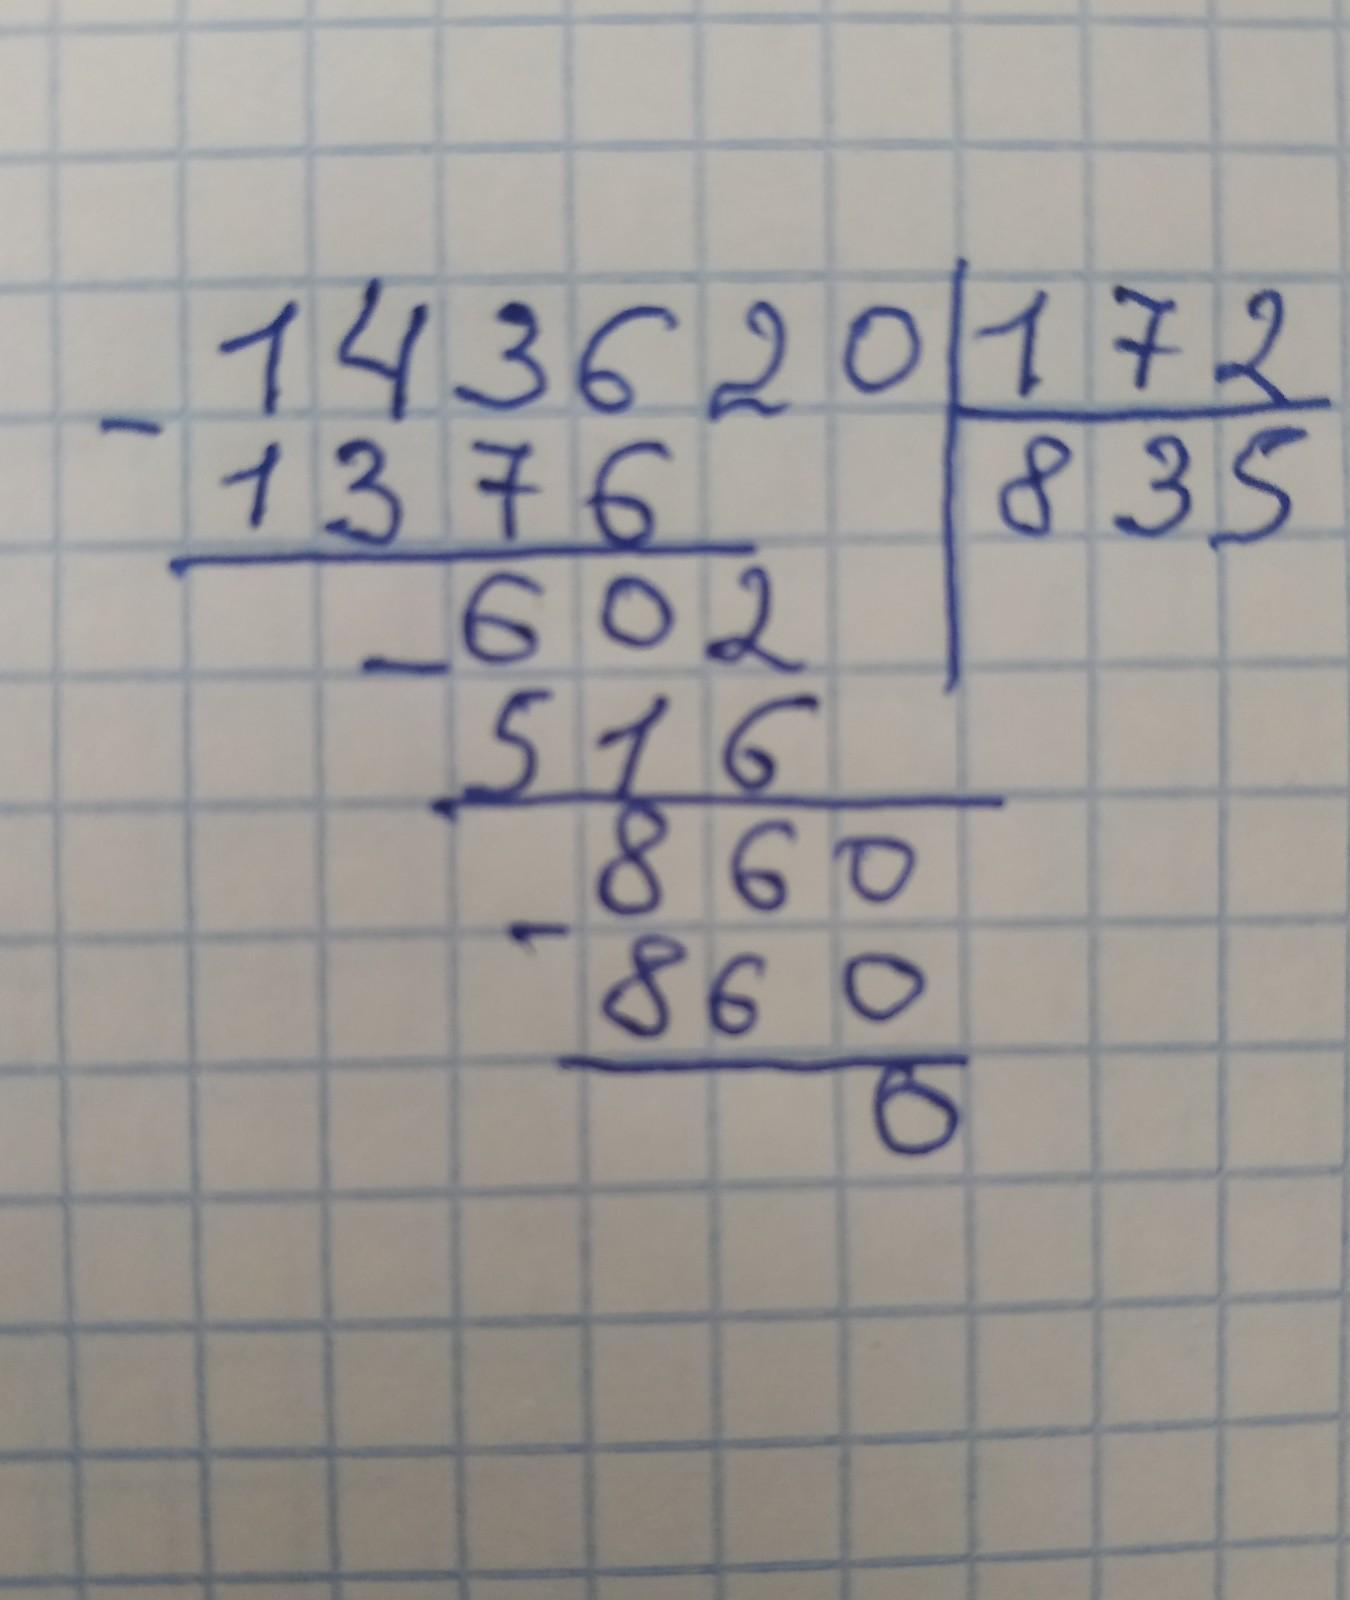 143620 | 172
- 1376 | 835
- 602
516
- 860
860
0